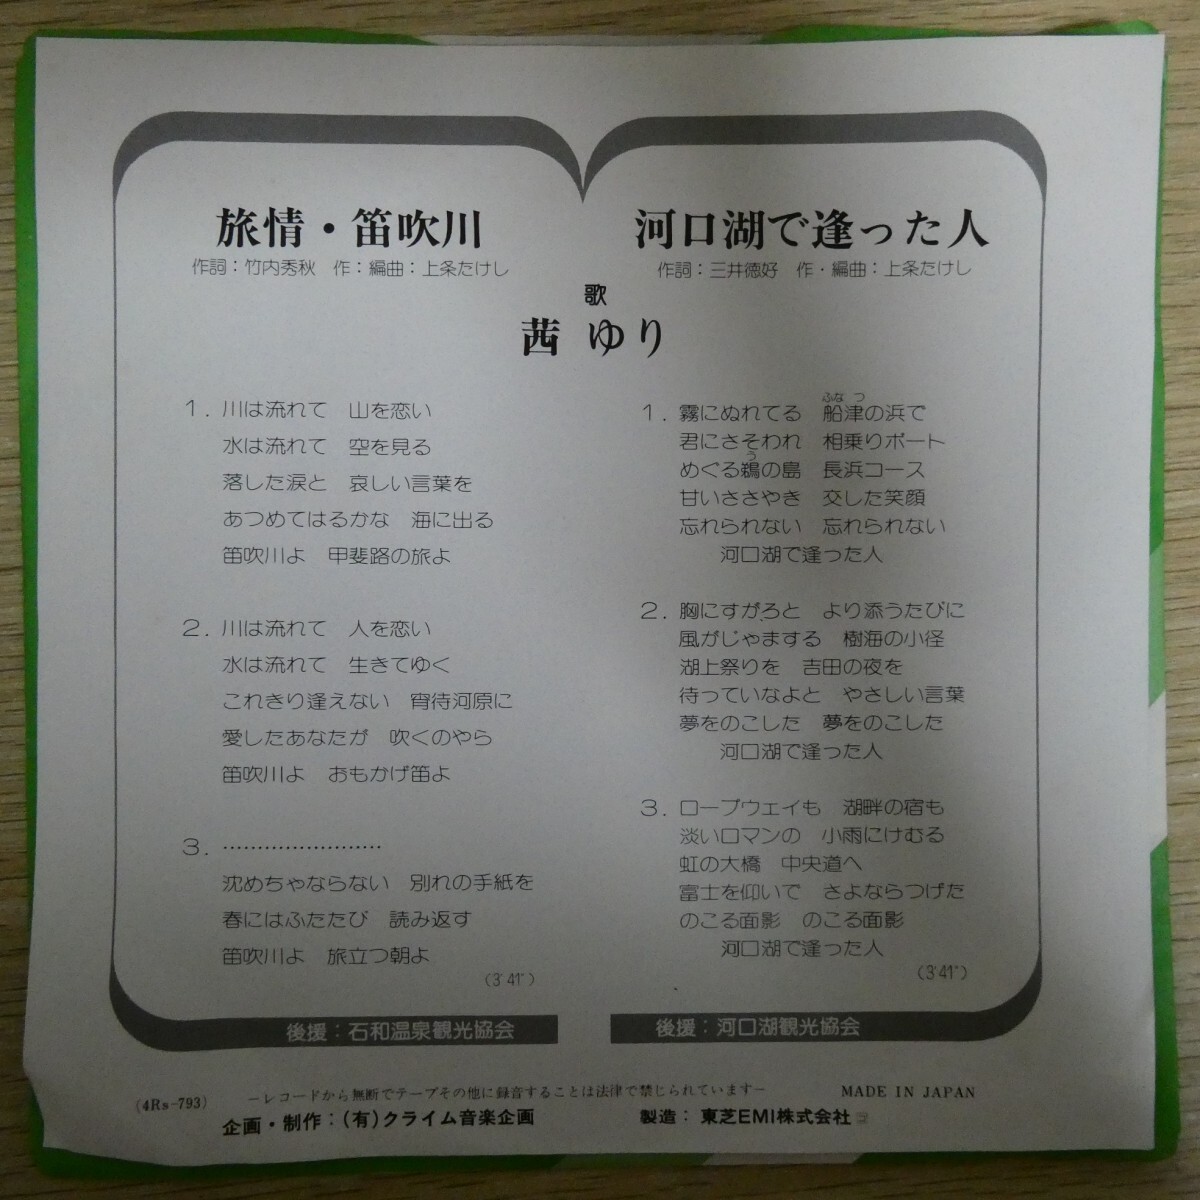 旅情・笛吹川
作詞：竹内秀秋　作：編曲：上条たけし
河口湖で逢った人
作詞：三井徳好　作・編曲：上条たけし
歌
茜 ゆり
1. 川は流れて　山を恋い
水は流れて　空を見る
落した涙と　哀しい言葉を
あつめてはるかな　海に出る
笛吹川よ　甲斐路の旅よ
2. 川は流れて　人を恋い
水は流れて　生きてゆく
これきり逢えない　宵待河原に
愛したあなたが　吹くのやら
笛吹川よ　おもかげ笛よ
3. ……………………
沈めちゃならない　別れの手紙を
春にはふたたび　読み返す
笛吹川よ　旅立つ朝よ
(3'41")
後援：石和温泉観光協会
ふな つ
1. 霧にぬれてる　船津の浜で
君にさそわれ　相乗りボート
う
めぐる鵜の島　長浜コース
甘いささやき　交した笑顔
忘れられない　忘れられない
河口湖で逢った人
2. 胸にすがろと　より添うたびに
風がじゃまする　樹海の小径
湖上祭りを　吉田の夜を
待っていなよと　やさしい言葉
夢をのこした　夢をのこした
河口湖で逢った人
3. ロープウェイも　湖畔の宿も
淡いロマンの　小雨にけむる
虹の大橋　中央道へ
富士を仰いで　さよならつげた
のこる面影　のこる面影
河口湖で逢った人
(3'41")
後援：河口湖観光協会
(4Rs-793)
－レコードから無断でテープその他に録音することは法律で禁じられています－
MADE IN JAPAN
企画・制作：(有)クライム音楽企画
製造： 東芝EMI株式会社